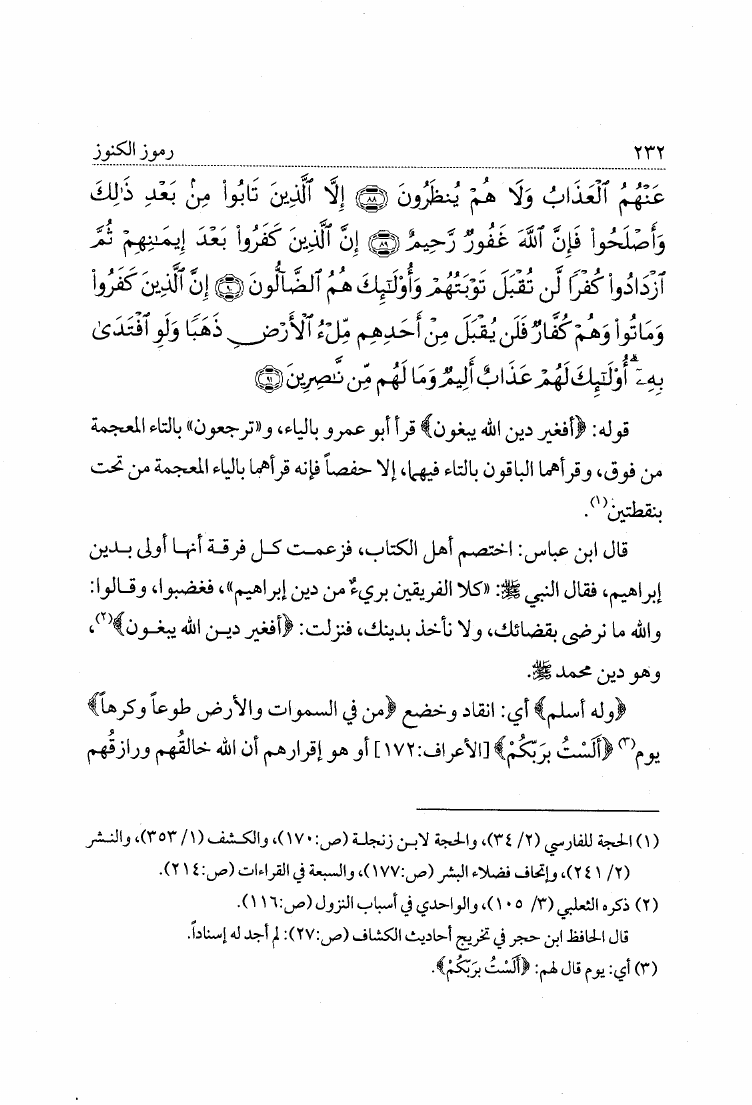 ٢٣٢ رموز الكنوز
عَنْهُمُ ٱلْعَذَابُ وَلَا هُمْ يُنظَرُونَ ۝٨٨ إِلَّا ٱلَّذِينَ تَابُوا۟ مِنۢ بَعْدِ ذَٰلِكَ
وَأَصْلَحُوا۟ فَإِنَّ ٱللَّهَ غَفُورٌ رَّحِيمٌ ۝٨٩ إِنَّ ٱلَّذِينَ كَفَرُوا۟ بَعْدَ إِيمَـٰنِهِمْ ثُمَّ
ٱزْدَادُوا۟ كُفْرًا لَّن تُقْبَلَ تَوْبَتُهُمْ وَأُو۟لَـٰٓئِكَ هُمُ ٱلضَّآلُّونَ ۝٩٠ إِنَّ ٱلَّذِينَ كَفَرُوا۟
وَمَاتُوا۟ وَهُمْ كُفَّارٌ فَلَن يُقْبَلَ مِنْ أَحَدِهِم مِّلْءُ ٱلْأَرْضِ ذَهَبًا وَلَوِ ٱفْتَدَىٰ
بِهِۦٓ ۗ أُو۟لَـٰٓئِكَ لَهُمْ عَذَابٌ أَلِيمٌ وَمَا لَهُم مِّن نَّـٰصِرِينَ ۝٩١
قوله: ﴿أفغير دين الله يبغون﴾ قرأ أبو عمرو بالياء، و«ترجعون» بالتاء المعجمة
من فوق، وقرأهما الباقون بالتاء فيهما، إلا حفصاً فإنه قرأهما بالياء المعجمة من تحت
بنقطتين(١).
قال ابن عباس: اختصم أهل الكتاب، فزعمت كل فرقة أنها أولى بدين
إبراهيم، فقال النبي ﷺ: «كلا الفريقين بريءٌ من دين إبراهيم»، فغضبوا، وقالوا:
والله ما نرضى بقضائك، ولا نأخذ بدينك، فنزلت: ﴿أفغير دين الله يبغون﴾(٢)،
وهو دين محمد ﷺ.
﴿وله أسلم﴾ أي: انقاد وخضع ﴿من في السموات والأرض طوعاً وكرهاً﴾
يوم(٣) ﴿أَلَسْتُ بِرَبِّكُمْ﴾ [الأعراف:١٧٢] أو هو إقرارهم أن الله خالقُهم ورازقُهم
(١) الحجة للفارسي (٢/ ٣٤)، والحجة لابن زنجلة (ص:١٧٠)، والكشف (١/ ٣٥٣)، والنشر
(٢/ ٢٤١)، وإتحاف فضلاء البشر (ص:١٧٧)، والسبعة في القراءات (ص:٢١٤).
(٢) ذكره الثعلبي (٣/ ١٠٥)، والواحدي في أسباب النزول (ص:١١٦).
قال الحافظ ابن حجر في تخريج أحاديث الكشاف (ص:٢٧): لم أجد له إسناداً.
(٣) أي: يوم قال لهم: ﴿أَلَسْتُ بِرَبِّكُمْ﴾.